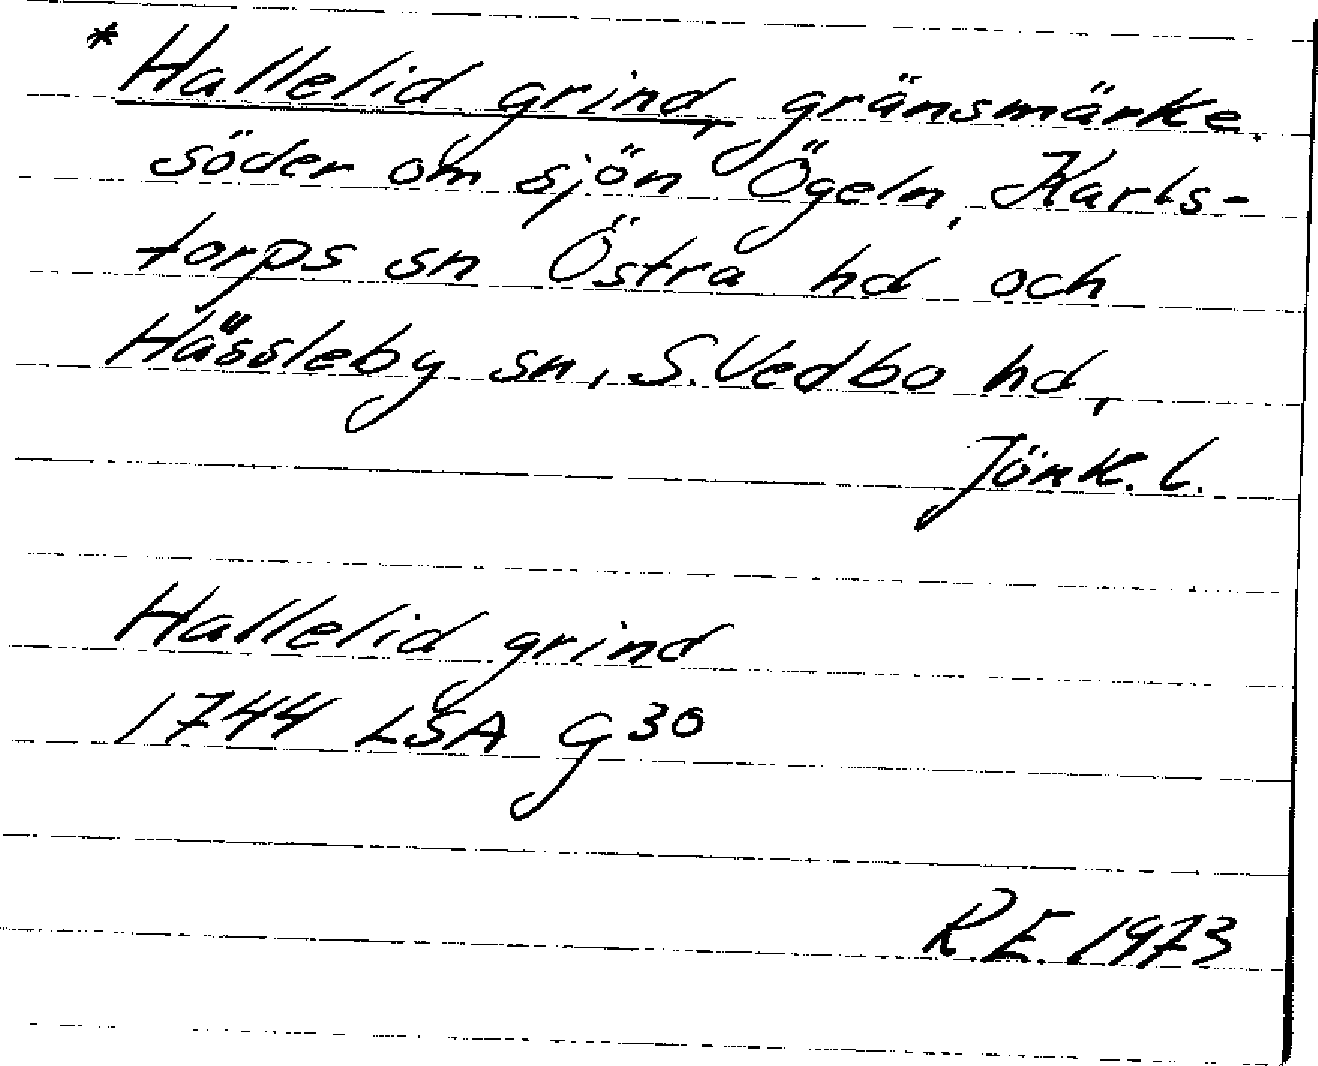 * Hallelid grind, gränsmärke.
söder om sjön Ögeln, Karls-
torps sn Östra hd och
Hässleby sn, S. Vedbo hd,
Jönk. l.
Hallelid grind
1744 LSA G30
R.E. 1973